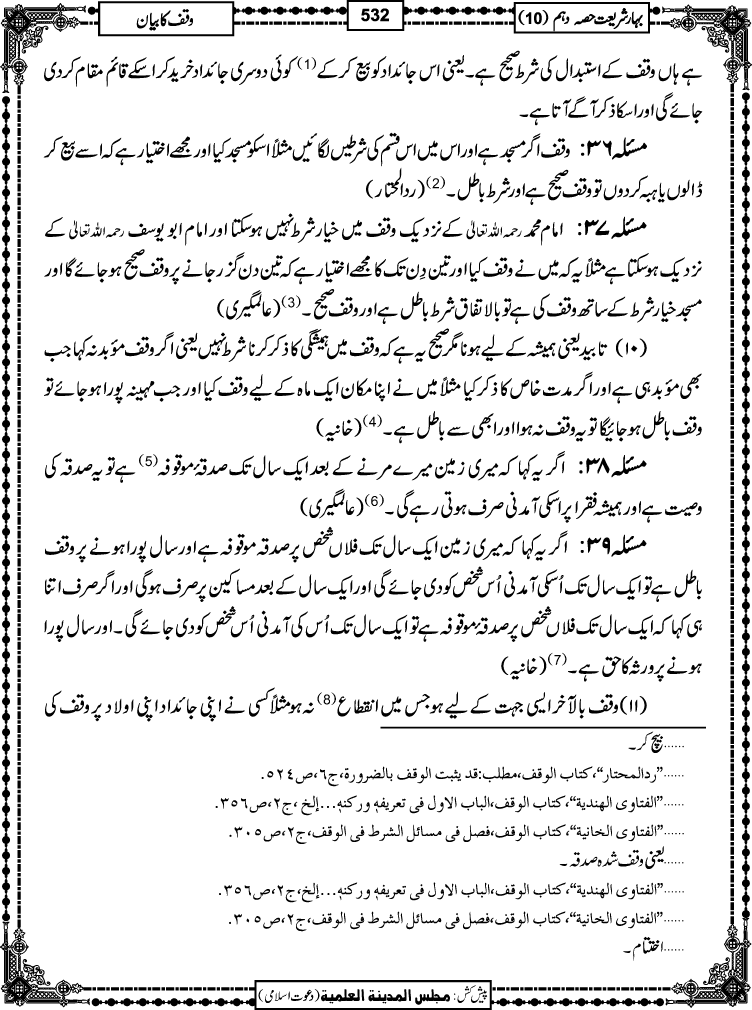 بہارِشریعت حصہ دہم (10)
532
وقف کا بیان
ہے ہاں وقف کے استبدال کی شرط صحیح ہے۔ یعنی اس جائداد کو بیع کر کے(1) کوئی دوسری جائداد خرید کر اسکے قائم مقام کر دی
جائے گی اور اسکا ذکر آگے آتا ہے۔
مسئلہ ۳۶: وقف اگر مسجد ہے اور اس میں اس قسم کی شرطیں لگائیں مثلاً اسکو مسجد کیا اور مجھے اختیار ہے کہ اسے بیع کر
ڈالوں یا ہبہ کر دوں تو وقف صحیح ہے اور شرط باطل۔(2) (ردالمحتار)
مسئلہ ۳۷: امام محمد رحمہ اللہ تعالیٰ کے نزدیک وقف میں خیار شرط نہیں ہو سکتا اور امام ابو یوسف رحمہ اللہ تعالیٰ کے
نزدیک ہو سکتا ہے مثلاً یہ کہ میں نے وقف کیا اور تین دِن تک کا مجھے اختیار ہے کہ تین دن گزر جانے پر وقف صحیح ہو جائے گا اور
مسجد خیار شرط کے ساتھ وقف کی ہے تو بالاتفاق شرط باطل ہے اور وقف صحیح۔(3) (عالمگیری)
(۱۰) تابید یعنی ہمیشہ کے لیے ہونا مگر صحیح یہ ہے کہ وقف میں ہمیشگی کا ذکر کرنا شرط نہیں یعنی اگر وقف مؤبد نہ کہا جب
بھی مؤبد ہی ہے اور اگر مدت خاص کا ذکر کیا مثلاً میں نے اپنا مکان ایک ماہ کے لیے وقف کیا اور جب مہینہ پورا ہو جائے تو
وقف باطل ہو جائیگا تو یہ وقف نہ ہوا اور ابھی سے باطل ہے۔(4) (خانیہ)
مسئلہ ۳۸: اگر یہ کہا کہ میری زمین میرے مرنے کے بعد ایک سال تک صدقۂ موقوفہ(5) ہے تو یہ صدقہ کی
وصیت ہے اور ہمیشہ فقرا پر اسکی آمدنی صرف ہوتی رہے گی۔(6) (عالمگیری)
مسئلہ ۳۹: اگر یہ کہا کہ میری زمین ایک سال تک فلاں شخص پر صدقہ موقوفہ ہے اور سال پورا ہونے پر وقف
باطل ہے تو ایک سال تک اُسکی آمدنی اُس شخص کو دی جائے گی اور ایک سال کے بعد مساکین پر صرف ہوگی اور اگر صرف اتنا
ہی کہا کہ ایک سال تک فلاں شخص پر صدقۂ موقوفہ ہے تو ایک سال تک اُس کی آمدنی اُس شخص کو دی جائے گی۔ اور سال پورا
ہونے پر ورثہ کا حق ہے۔(7) (خانیہ)
(۱۱) وقف بالآخر ایسی جہت کے لیے ہو جس میں انقطاع(8) نہ ہو مثلاً کسی نے اپنی جائداد اپنی اولاد پر وقف کی
......بیچ کر۔
......"ردالمحتار"، کتاب الوقف، مطلب: قد یثبت الوقف بالضرورة، ج٦، ص٥٢٤.
......"الفتاوی الهندیة"، کتاب الوقف، الباب الاول فی تعریفه ورکنه...إلخ، ج٢، ص٣٥٦.
......"الفتاوی الخانیة"، کتاب الوقف، فصل فی مسائل الشرط فی الوقف، ج٢، ص٣٠٥.
......یعنی وقف شدہ صدقہ۔
......"الفتاوی الهندیة"، کتاب الوقف، الباب الاول فی تعریفه ورکنه...إلخ، ج٢، ص٣٥٦.
......"الفتاوی الخانیة"، کتاب الوقف، فصل فی مسائل الشرط فی الوقف، ج٢، ص٣٠٥.
......اختتام۔
پیش کش: مجلس المدینة العلمیة (دعوت اسلامی)